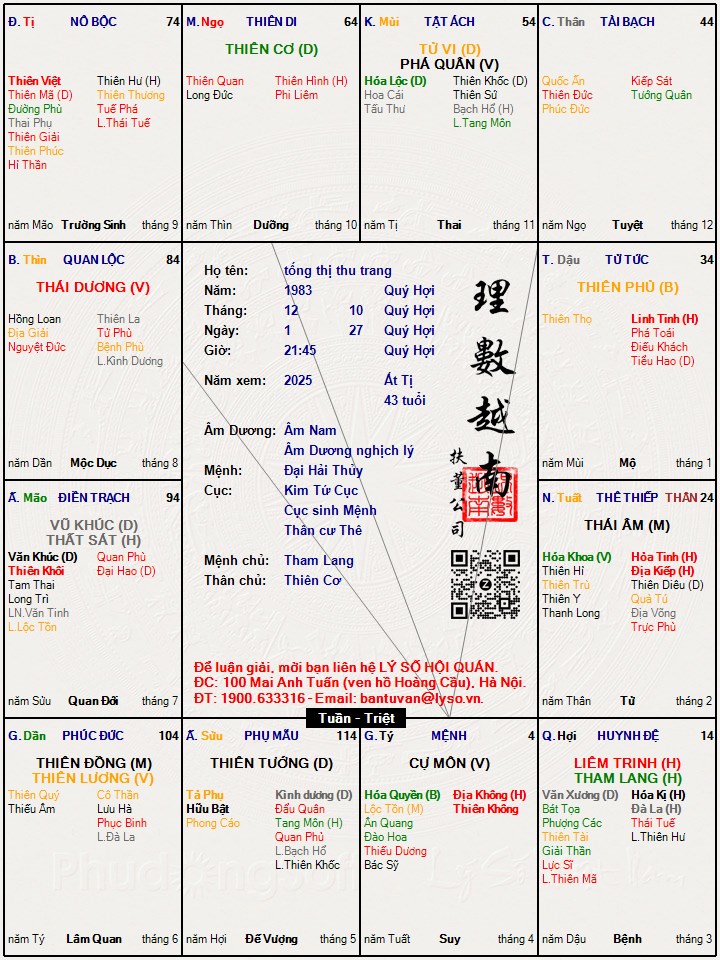 Đ. Tị NÔ BỘC 74
THIÊN VIỆT Thiên Hư (H)
Thiên Mã (D) Thiên Thương
Đường Phù Tuế Phá
Thai Phụ L.Thái Tuế
Thiên Giải
Thiên Phúc
Hỉ Thần
năm Mão Trường Sinh tháng 9
M. Ngọ THIÊN DI 64
THIÊN CƠ (D)
Thiên Quan Thiên Hình (H)
Long Đức Phi Liêm
năm Thìn Dưỡng tháng 10
K. Mùi TẬT ÁCH 54
TỬ VI (D)
PHÁ QUÂN (V)
Hóa Lộc (D) Thiên Khốc (D)
Hoa Cái Thiên Sứ
Tấu Thư Bạch Hổ (H)
L.Tang Môn
năm Tị Thai tháng 11
C. Thân TÀI BẠCH 44
Quốc Ấn Kiếp Sát
Thiên Đức Tướng Quân
Phúc Đức
năm Ngọ Tuyệt tháng 12
B. Thìn QUAN LỘC 84
THÁI DƯƠNG (V)
Hồng Loan Thiên La
Địa Giải Tử Phù
Nguyệt Đức Bệnh Phù
L.Kình Dương
năm Dần Mộc Dục tháng 8
Họ tên: tống thị thu trang
Năm: 1983 Quý Hợi
Tháng: 12 10 Quý Hợi
Ngày: 1 27 Quý Hợi
Giờ: 21:45 Quý Hợi
Năm xem: 2025 Ất Tị
43 tuổi
Âm Dương: Âm Nam
Âm Dương nghịch lý
Mệnh: Đại Hải Thủy
Cục: Kim Tứ Cục
Cục sinh Mệnh
Thân cư Thê
Mệnh chủ: Tham Lang
Thân chủ: Thiên Cơ
理數越南
扶董公司
Để luận giải, mời bạn liên hệ LÝ SỐ HỘI QUÁN.
ĐC: 100 Mai Anh Tuấn (ven hồ Hoàng Cầu), Hà Nội.
ĐT: 1900.633316 - Email: bantuvan@lyso.vn.
Tuần - Triệt
T. Dậu TỬ TỨC 34
THIÊN PHỦ (B)
Thiên Thọ Linh Tinh (H)
Phá Toái
Điếu Khách
Tiểu Hao (D)
năm Mùi Mộ tháng 1
Ấ. Mão ĐIỀN TRẠCH 94
VŨ KHÚC (D)
THẤT SÁT (H)
Văn Khúc (D) Quan Phù
Thiên Khôi Đại Hao (D)
Tam Thai
Long Trì
LN.Văn Tinh
L.Lộc Tồn
năm Sửu Quan Đới tháng 7
N. Tuất THÊ THIẾP THÂN 24
THÁI ÂM (M)
Hóa Khoa (V) Hỏa Tinh (H)
Thiên Hỉ Địa Kiếp (H)
Thiên Trù Thiên Diêu (D)
Thiên Y Quả Tú
Thanh Long Địa Võng
Trực Phù
năm Thân Tử tháng 2
G. Dần PHÚC ĐỨC 104
THIÊN ĐỒNG (M)
THIÊN LƯƠNG (V)
Thiên Quý Cô Thần
Thiếu Âm Lưu Hà
Phục Binh
L.Đà La
năm Tý Lâm Quan tháng 6
Ấ. Sửu PHỤ MẪU 114
THIÊN TƯỚNG (D)
Tả Phụ Kình dương (D)
Hữu Bật Đẩu Quân
Phong Cáo Tang Môn (H)
Quan Phủ
L.Bạch Hổ
L.Thiên Khốc
năm Hợi Đế Vượng tháng 5
G. Tý MỆNH 4
CỰ MÔN (V)
Hóa Quyền (B) Địa Không (H)
Lộc Tồn (M) Thiên Không
Ân Quang
Đào Hoa
Thiếu Dương
Bác Sỹ
năm Tuất Suy tháng 4
Q. Hợi HUYNH ĐỆ 14
LIÊM TRINH (H)
THAM LANG (H)
Văn Xương (D) Hóa Kị (H)
Bát Tọa Đà La (H)
Phượng Các Thái Tuế
Thiên Tài L.Thiên Hư
Giải Thần
Lực Sĩ
L.Thiên Mã
năm Dậu Bệnh tháng 3